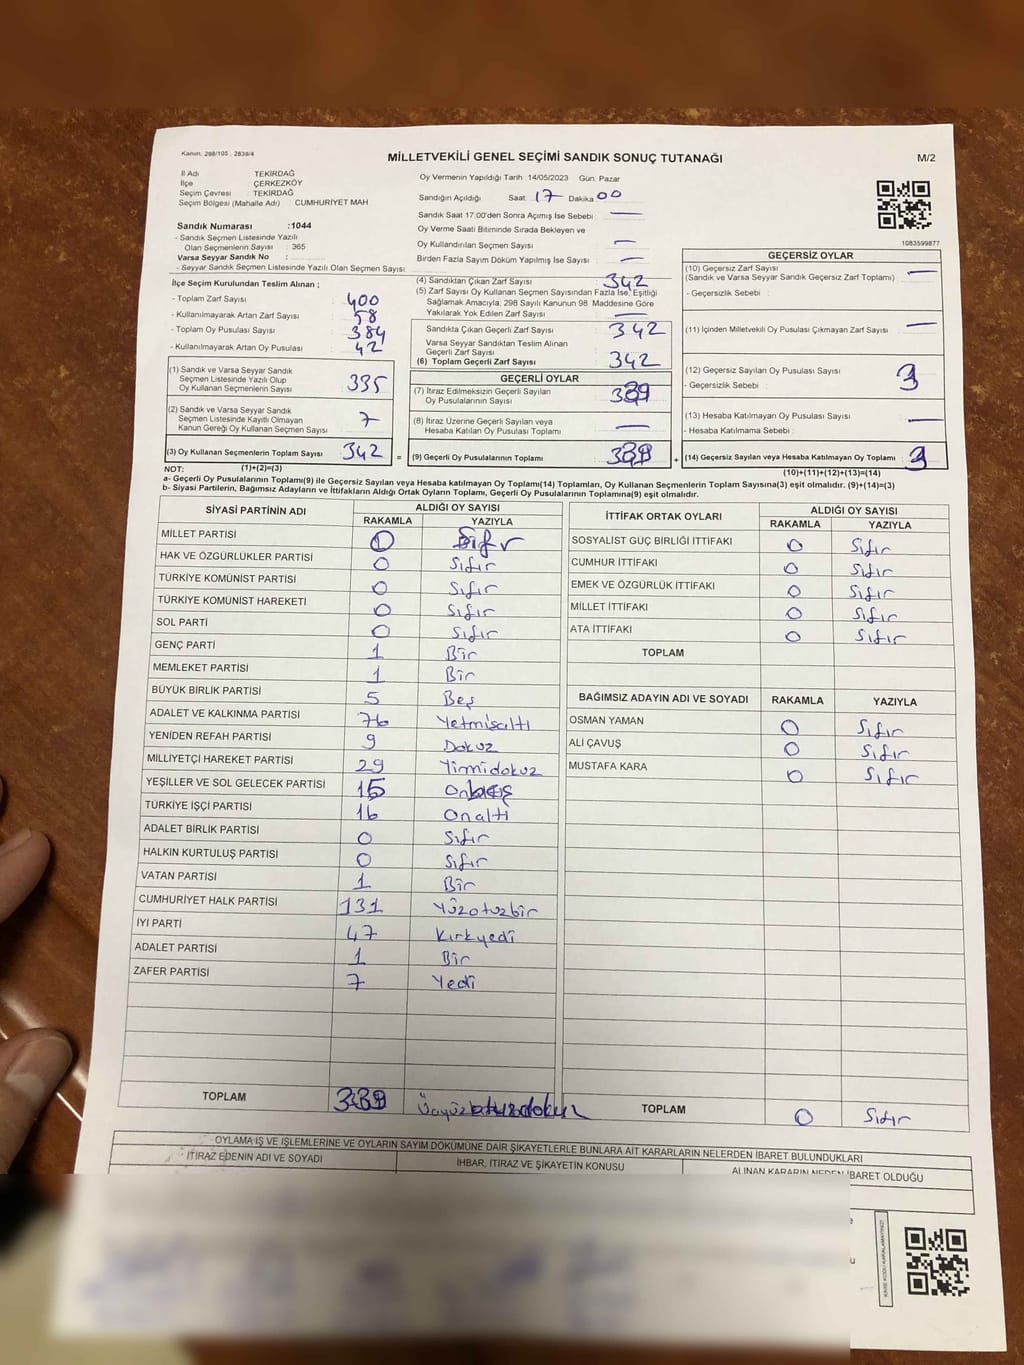 Kanun. 298/105 . 2839/4
MİLLETVEKİLİ GENEL SEÇİMİ SANDIK SONUÇ TUTANAĞI
M/2
İl Adı TEKİRDAĞ
İlçe ÇERKEZKÖY
Seçim Çevresi TEKİRDAĞ
Seçim Bölgesi (Mahalle Adı) : CUMHURİYET MAH
Sandık Numarası :1044
- Sandık Seçmen Listesinde Yazılı
Olan Seçmenlerin Sayısı : 365
Varsa Seyyar Sandık No :
- Seyyar Sandık Seçmen Listesinde Yazılı Olan Seçmen Sayısı
Oy Vermenin Yapıldığı Tarih :14/05/2023 Gün: Pazar
Sandığın Açıldığı Saat: 17 Dakika 00
Sandık Saat 17:00'den Sonra Açılmış İse Sebebi : —
Oy Verme Saati Bitiminde Sırada Bekleyen ve
Oy Kullandırılan Seçmen Sayısı : —
Birden Fazla Sayım Döküm Yapılmış İse Sayısı : —
1083599877
İlçe Seçim Kurulundan Teslim Alınan ;
- Toplam Zarf Sayısı : 400
- Kullanılmayarak Artan Zarf Sayısı : 58
- Toplam Oy Pusulası Sayısı : 384
- Kullanılmayarak Artan Oy Pusulası : 42
(1) Sandık ve Varsa Seyyar Sandık
Seçmen Listesinde Yazılı Olup
Oy Kullanan Seçmenlerin Sayısı : 335
(2) Sandık ve Varsa Seyyar Sandık
Seçmen Listesinde Kayıtlı Olmayan
Kanun Gereği Oy Kullanan Seçmen Sayısı : 7
(3) Oy Kullanan Seçmenlerin Toplam Sayısı : 342 =
(4) Sandıktan Çıkan Zarf Sayısı : 342
(5) Zarf Sayısı Oy Kullanan Seçmen Sayısından Fazla İse, Eşitliği
Sağlamak Amacıyla, 298 Sayılı Kanunun 98. Maddesine Göre
Yakılarak Yok Edilen Zarf Sayısı : —
Sandıkta Çıkan Geçerli Zarf Sayısı : 342
Varsa Seyyar Sandıktan Teslim Alınan
Geçerli Zarf Sayısı :
(6) Toplam Geçerli Zarf Sayısı : 342
GEÇERLİ OYLAR
(7) İtiraz Edilmeksizin Geçerli Sayılan
Oy Pusulalarının Sayısı : 339
(8) İtiraz Üzerine Geçerli Sayılan veya
Hesaba Katılan Oy Pusulası Toplamı : —
(9) Geçerli Oy Pusulalarının Toplamı : 339 +
GEÇERSİZ OYLAR
(10) Geçersiz Zarf Sayısı : —
(Sandık ve Varsa Seyyar Sandık Geçersiz Zarf Toplamı)
- Geçersizlik Sebebi :
(11) İçinden Milletvekili Oy Pusulası Çıkmayan Zarf Sayısı : —
(12) Geçersiz Sayılan Oy Pusulası Sayısı : 3
- Geçersizlik Sebebi :
(13) Hesaba Katılmayan Oy Pusulası Sayısı : —
- Hesaba Katılmama Sebebi :
(14) Geçersiz Sayılan veya Hesaba Katılmayan Oy Toplamı : 3
NOT: (1)+(2)=(3) (10)+(11)+(12)+(13)=(14)
a- Geçerli Oy Pusulalarının Toplamı(9) ile Geçersiz Sayılan veya Hesaba katılmayan Oy Toplamı(14) Toplamları, Oy Kullanan Seçmenlerin Toplam Sayısına(3) eşit olmalıdır. (9)+(14)=(3)
b- Siyasi Partilerin, Bağımsız Adayların ve İttifakların Aldığı Ortak Oyların Toplamı, Geçerli Oy Pusulalarının Toplamına(9) eşit olmalıdır.
SİYASİ PARTİNİN ADI ALDIĞI OY SAYISI
RAKAMLA YAZIYLA
MİLLET PARTİSİ 0 Sıfır
HAK VE ÖZGÜRLÜKLER PARTİSİ 0 Sıfır
TÜRKİYE KOMÜNİST PARTİSİ 0 Sıfır
TÜRKİYE KOMÜNİST HAREKETİ 0 Sıfır
SOL PARTİ 0 Sıfır
GENÇ PARTİ 1 Bir
MEMLEKET PARTİSİ 1 Bir
BÜYÜK BİRLİK PARTİSİ 5 Beş
ADALET VE KALKINMA PARTİSİ 76 Yetmişaltı
YENİDEN REFAH PARTİSİ 9 Dokuz
MİLLİYETÇİ HAREKET PARTİSİ 29 Yirmidokuz
YEŞİLLER VE SOL GELECEK PARTİSİ 15 Onbeş
TÜRKİYE İŞÇİ PARTİSİ 16 Onaltı
ADALET BİRLİK PARTİSİ 0 Sıfır
HALKIN KURTULUŞ PARTİSİ 0 Sıfır
VATAN PARTİSİ 1 Bir
CUMHURİYET HALK PARTİSİ 131 Yüzotuzbir
İYİ PARTİ 47 Kırkyedi
ADALET PARTİSİ 1 Bir
ZAFER PARTİSİ 7 Yedi
TOPLAM 339 Üçyüzotuzdokuz
İTTİFAK ORTAK OYLARI ALDIĞI OY SAYISI
RAKAMLA YAZIYLA
SOSYALİST GÜÇ BİRLİĞİ İTTİFAKI 0 Sıfır
CUMHUR İTTİFAKI 0 Sıfır
EMEK VE ÖZGÜRLÜK İTTİFAKI 0 Sıfır
MİLLET İTTİFAKI 0 Sıfır
ATA İTTİFAKI 0 Sıfır
TOPLAM
BAĞIMSIZ ADAYIN ADI VE SOYADI RAKAMLA YAZIYLA
OSMAN YAMAN 0 Sıfır
ALİ ÇAVUŞ 0 Sıfır
MUSTAFA KARA 0 Sıfır
TOPLAM 0 Sıfır
OYLAMA İŞ VE İŞLEMLERİNE VE OYLARIN SAYIM DÖKÜMÜNE DAİR ŞİKAYETLERLE BUNLARA AİT KARARLARIN NELERDEN İBARET BULUNDUKLARI
İTİRAZ EDENİN ADI VE SOYADI İHBAR, İTİRAZ VE ŞİKAYETİN KONUSU ALINAN KARARIN NEDEN İBARET OLDUĞU
KAREKODU KARALAMAYINIZ!